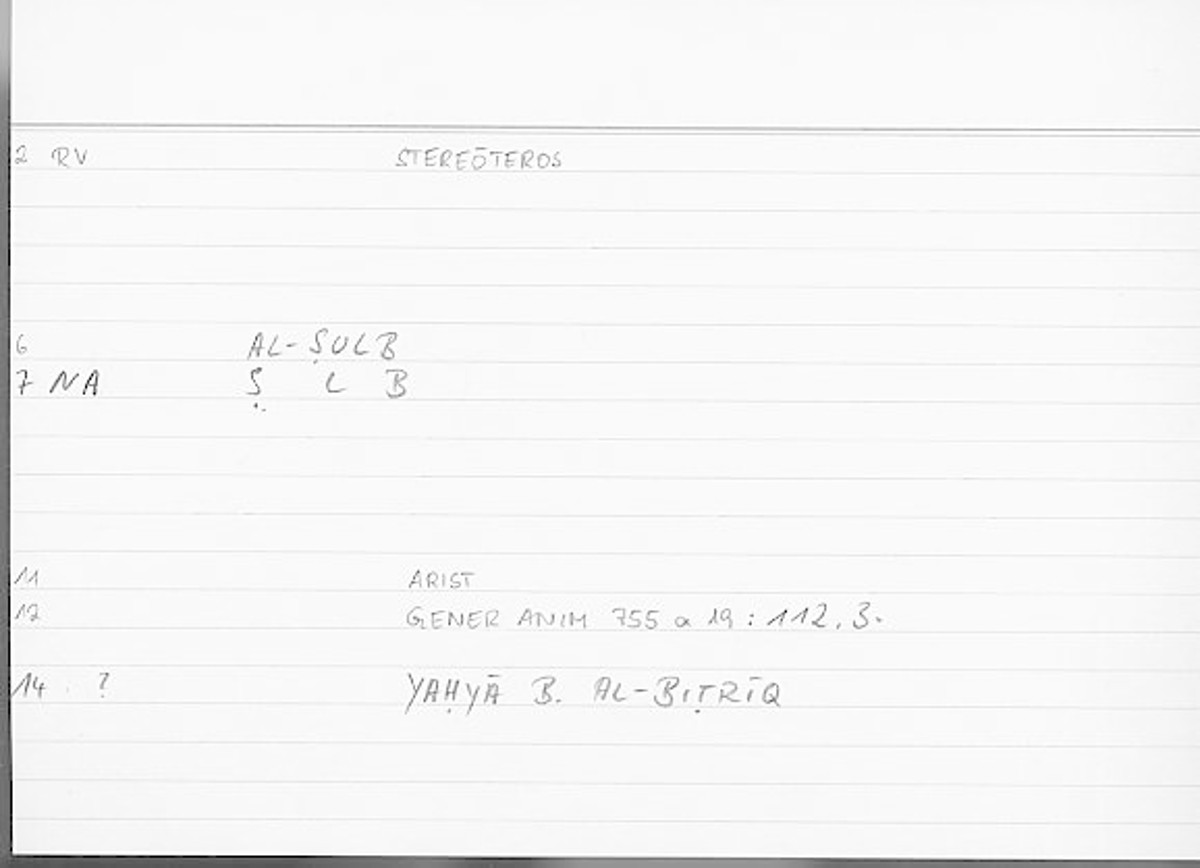 2 RV STEREŌTEROS
6 AL-ṢULB
7 NA Ṣ L B
11 ARIST
12 GENER ANIM 755 a 19 : 112,3.
14 ? YAḤYĀ B. AL-BIṬRĪQ